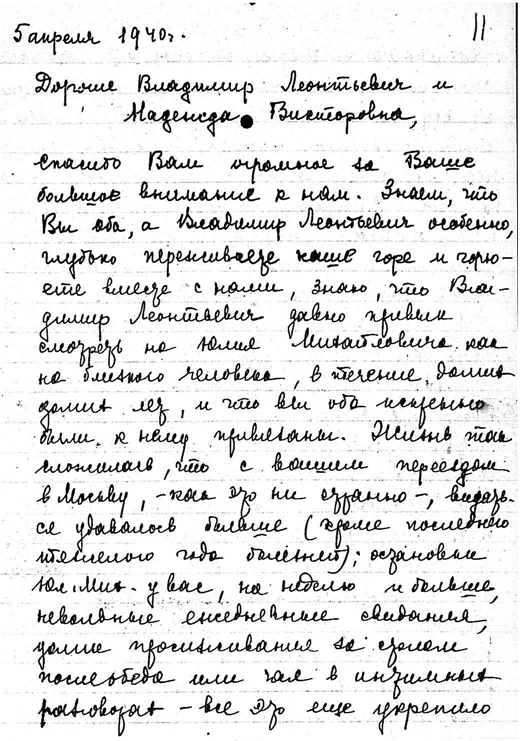 5 апреля 1940г. 11
Дорогие Владимир Леонтьевич и
Надежда Викторовна,
спасибо Вам огромное за Ваше
большое внимание к нам. Знаем, что
Вы оба, а Владимир Леонтьевич особенно,
глубоко переживаете наше горе и горю-
ете вместе с нами, знаю, что Вла-
димир Леонтьевич давно привык
смотреть на Юлия Михайловича как
на близкого человека, в течение долгих
долгих лет, и что вы оба искренно
были к нему привязаны. Жизнь так
сложилась, что с вашим переездом
в Москву, - как это ни странно -, видать-
ся удавалось больше (кроме последнего
тяжелого года болезней); остановки
Юл. Мих. у вас, на неделю и больше,
невольные ежедневные свидания,
долгие просиживания за столом
после обеда или чая в интимных
разговорах - все это еще укрепило